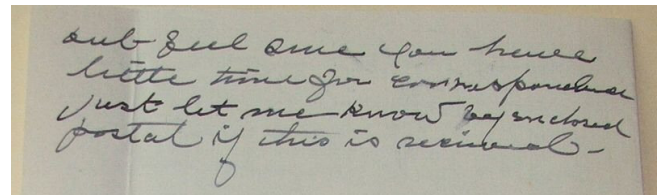 but feel sure you have
little time for correspondence
just let me know by enclosed
postal if this is received-